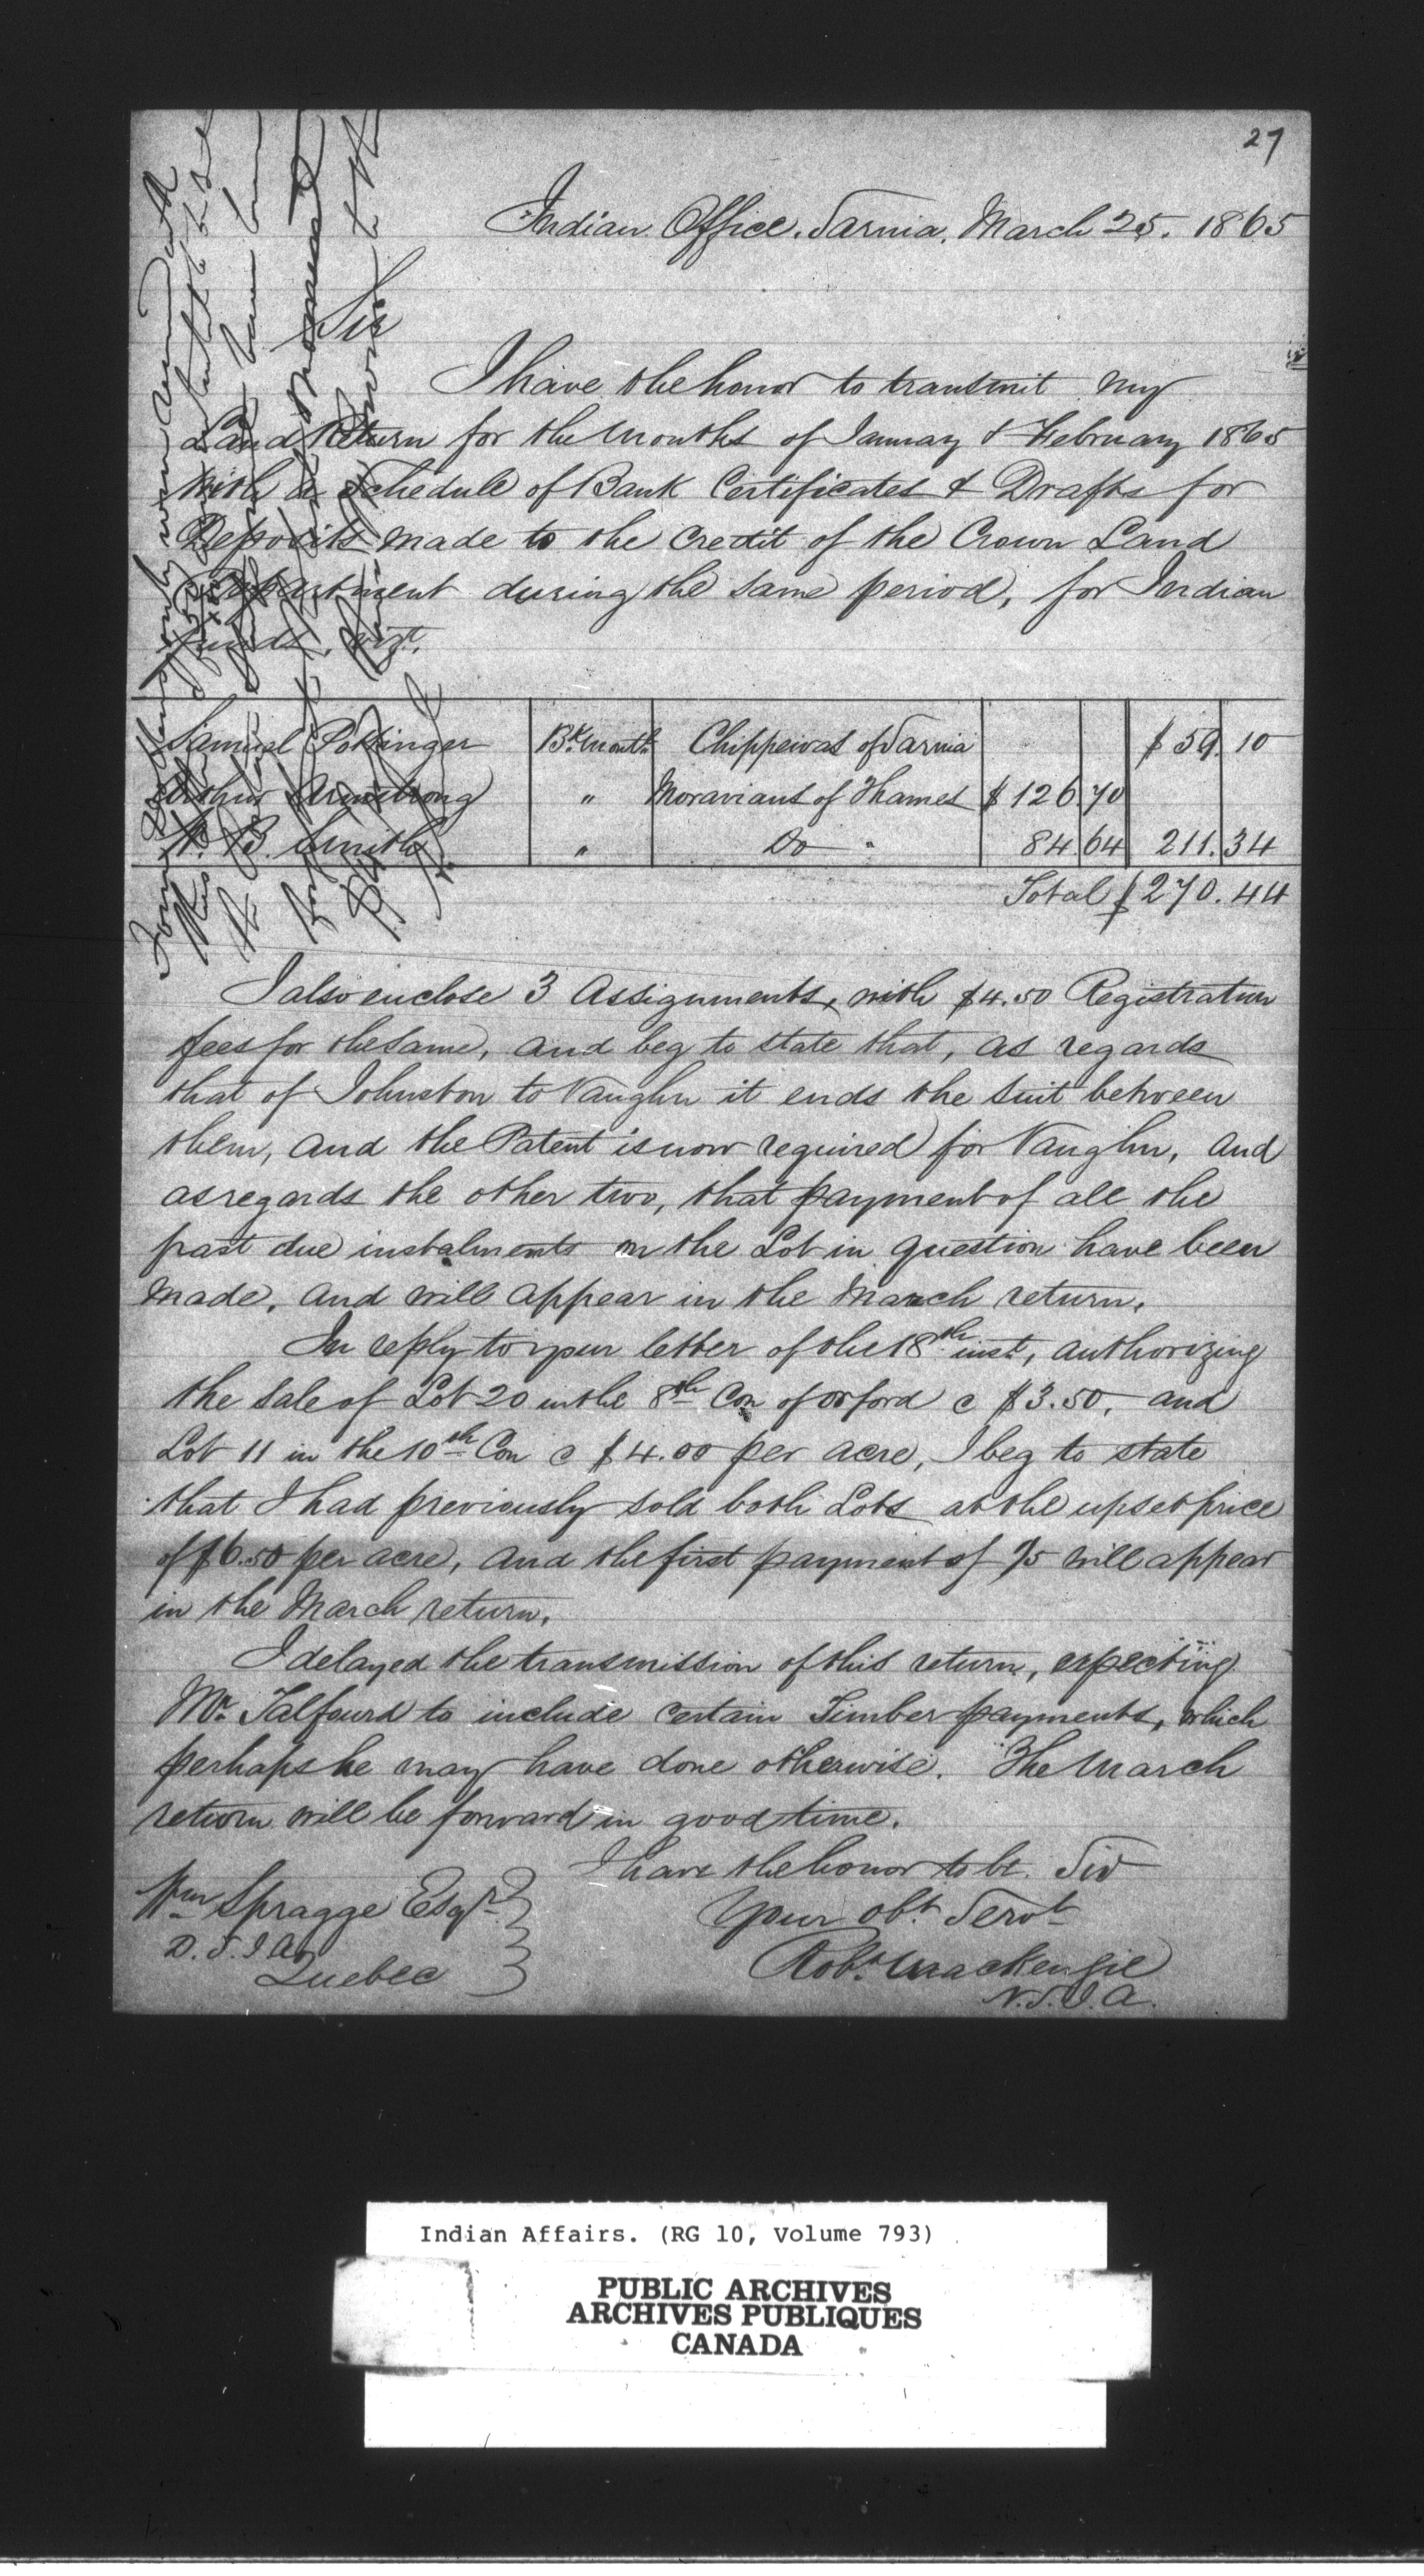 27
Indian Office. Sarnia. March 25. 1865
Sir
I have the honor to transmit my
Land Return for the months of January & February 1865
with a Schedule of Bank Certificates & Drafts for
Deposits made to the credit of the Crown Land
Department during the same period, for Indian
funds, vizt.
Samuel Pottinger Bk. Montl. Chippewas of Sarnia $59.10
Arthur Armstrong " Moravians of Thames $126 70
B. Smith " Do " 84 64 211.34
Total $270.44
I also enclose 3 Assignments, with $4.50 Registration
fees for the same, and beg to state that, as regards
that of Johnston to Vaughn it ends the suit between
them, and the Patent is now required for Vaughn, and
as regards the other two, that payment of all the
past due instalments on the Lot in question have been
made, and will appear in the March return.
In reply to your letter of the 18th inst, authorizing
the sale of Lot 20 in the 8th Con of Orford @ $3.50, and
Lot 11 in the 10th Con @ $4.00 per acre, I beg to state
that I had previously sold both Lots at the upset price
of $6.50 per acre, and the first payment of 1/5 will appear
in the March return.
I delayed the transmission of this return, expecting
Mr. Talfourd to include certain Timber payments, which
perhaps he may have done otherwise. The March
return will be forward in good time.
I have the honor to be. Sir
Your obt Servt
Robt. Mackenzie
V.S.I.A.
Wm Spragge Esqr
D.S.I.A.
Quebec
Indian Affairs. (RG 10, Volume 793)
PUBLIC ARCHIVES
ARCHIVES PUBLIQUES
CANADA